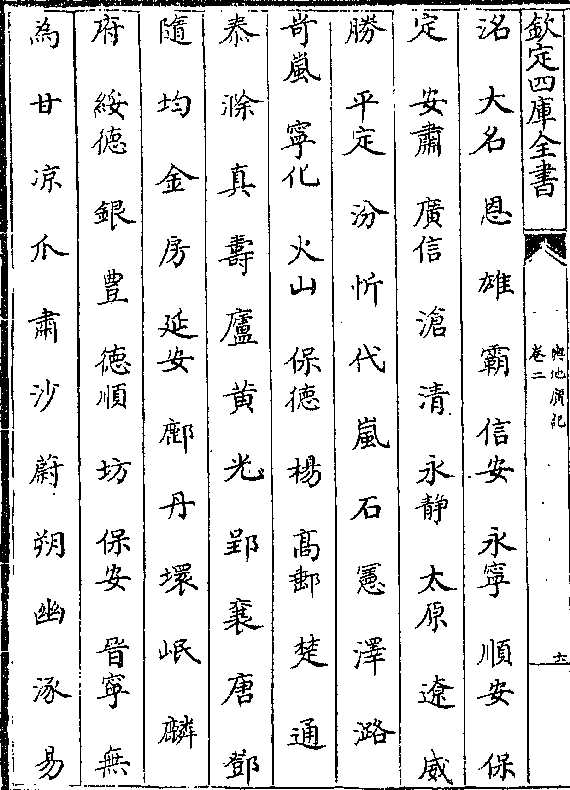 欽定四庫全書
輿地廣記
卷二
六
洺 大名 恩 雄 霸 信安 永寧 順安 保
定 安肅 廣信 滄 清 永静 太原 遼 威
勝 平定 汾 忻 代 嵐 石 憲 澤 潞
岢嵐 寧化 火山 保德 楊 髙郵 楚 通
泰 滁 真 壽 廬 黄 光 郢 襄 唐 鄧
隨 均 金 房 延安 鄜 丹 環 岷 麟
府 綏德 銀 豊 德順 坊 保安 晋寧 無
為 甘 凉 瓜 肅 沙 蔚 朔 幽 涿 易